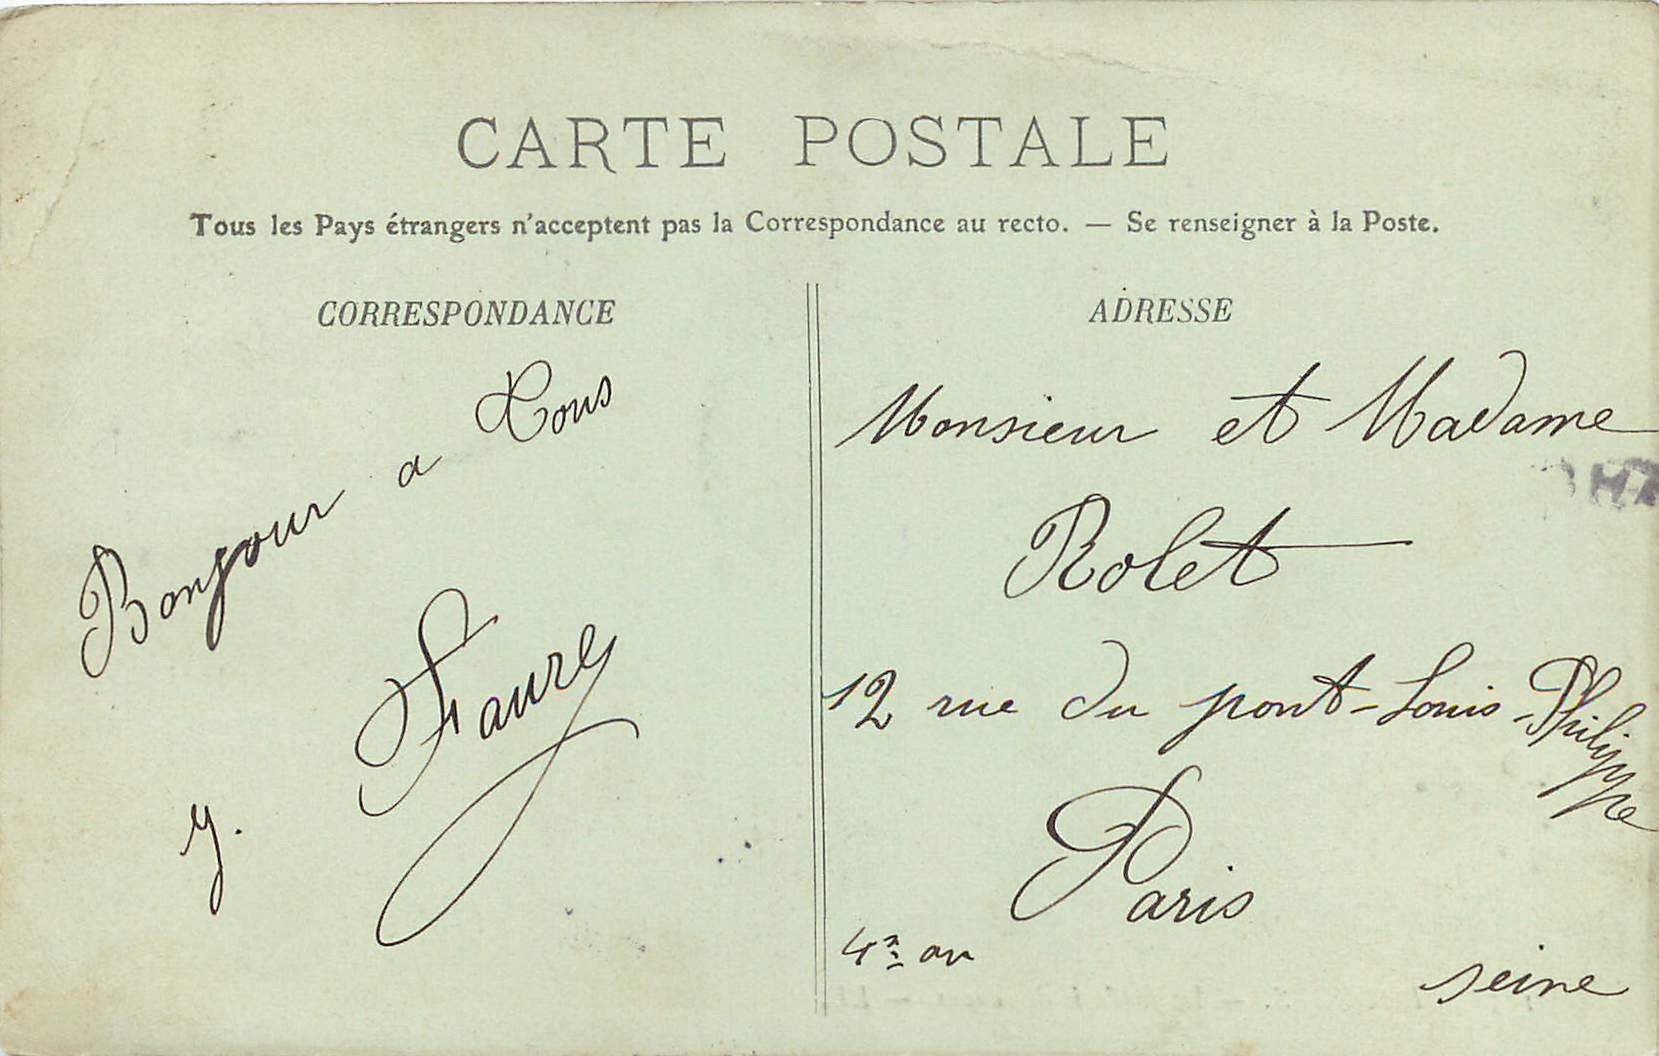 CARTE POSTALE
Tous les Pays étrangers n'acceptent pas la Correspondance au recto. — Se renseigner à la Poste.
CORRESPONDANCE
Bonjour a Tous
Y. Faurey
ADRESSE
Monsieur et Madame
Rolet
12 rue du pont-Louis-Philippe
Paris
4e ar
seine